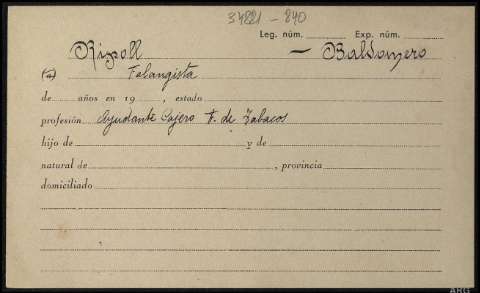 34821-840
Leg. núm. Exp. núm.
Ripoll — Baldomero
(a) Falangista
de años en 19 , estado
profesión Ayudante Cajero F. de Tabacos
hijo de y de
natural de , provincia
domiciliado
ARG